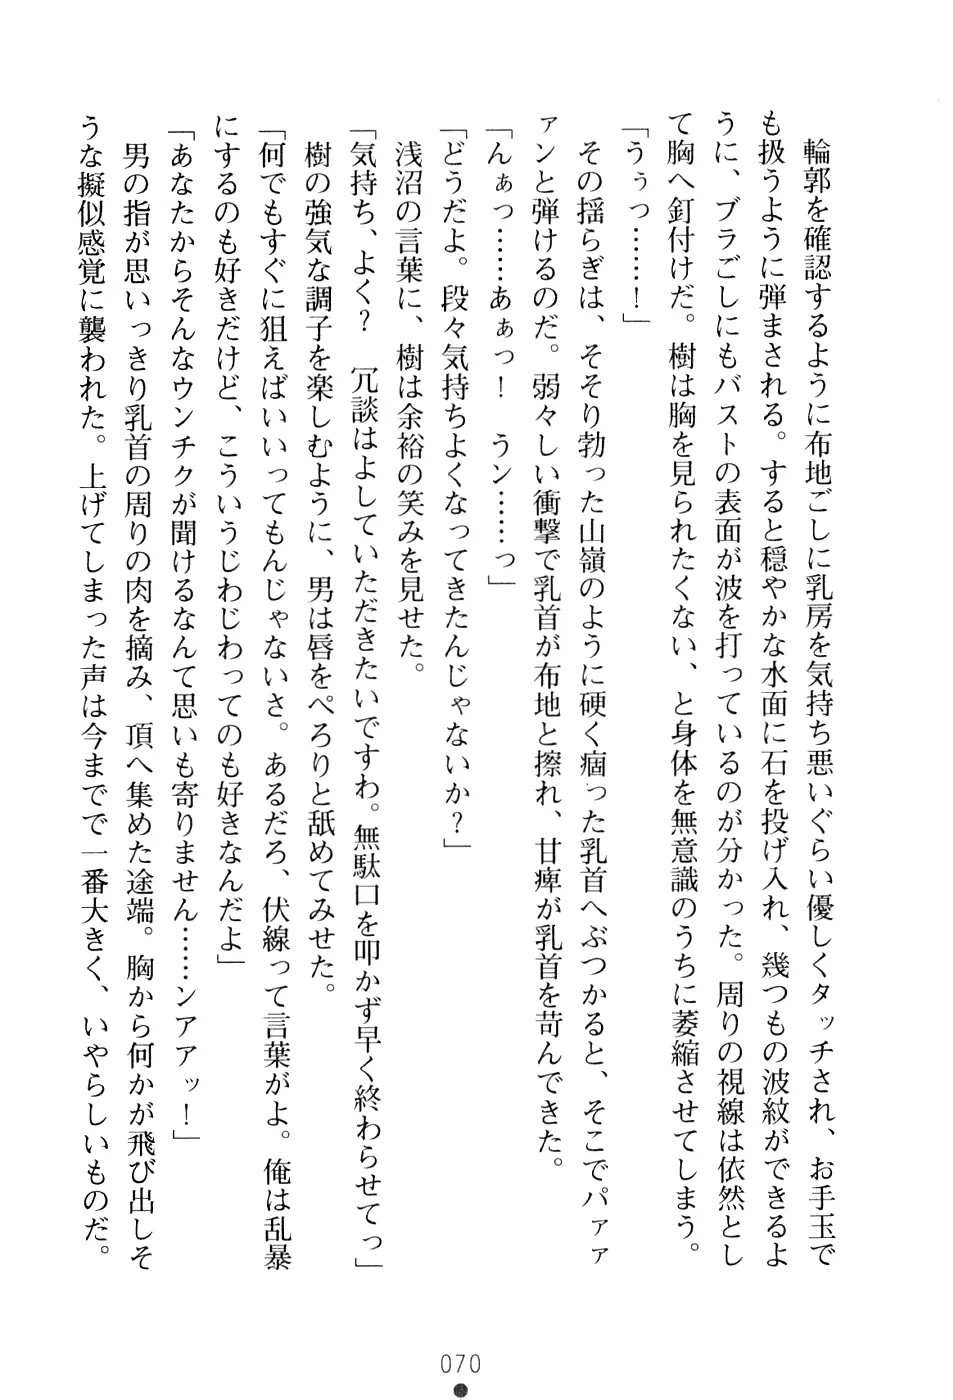 輪郭を確認するように布地ごしに乳房を気持ち悪いぐらい優しくタッチされ、お手玉で
も扱うように弾まされる。すると穏やかな水面に石を投げ入れ、幾つもの波紋ができるよ
うに、ブラごしにもバストの表面が波を打っているのが分かった。周りの視線は依然とし
て胸へ釘付けだ。樹は胸を見られたくない、と身体を無意識のうちに萎縮させてしまう。
「うぅっ……！」
その揺らぎは、そそり勃った山嶺のように硬く痼った乳首へぶつかると、そこでパァァ
ァンと弾けるのだ。弱々しい衝撃で乳首が布地と擦れ、甘痺が乳首を苛んできた。
「んぁっ……あぁっ！　うン……っ」
「どうだよ。段々気持ちよくなってきたんじゃないか？」
浅沼の言葉に、樹は余裕の笑みを見せた。
「気持ち、よく？　冗談はよしていただきたいですわ。無駄口を叩かず早く終わらせてっ」
樹の強気な調子を楽しむように、男は唇をぺろりと舐めてみせた。
「何でもすぐに狙えばいいってもんじゃないさ。あるだろ、伏線って言葉がよ。俺は乱暴
にするのも好きだけど、こういうじわじわってのも好きなんだよ」
「あなたからそんなウンチクが聞けるなんて思いも寄りません……ンアアッ！」
男の指が思いっきり乳首の周りの肉を摘み、頂へ集めた途端。胸から何かが飛び出しそ
うな擬似感覚に襲われた。上げてしまった声は今までで一番大きく、いやらしいものだ。
070